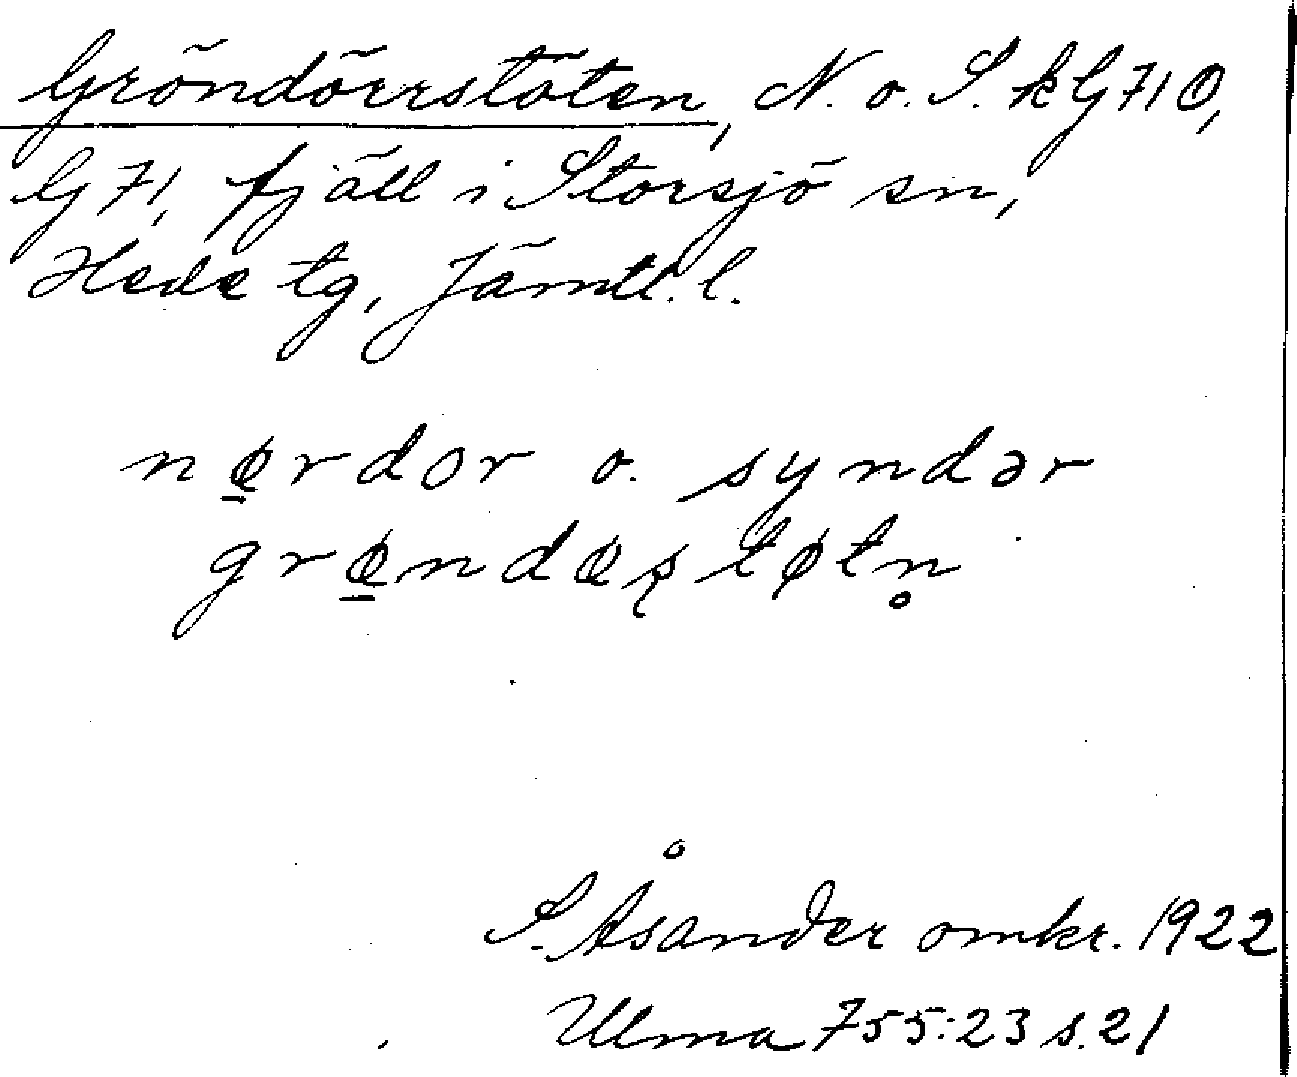 Gröndörrstöten, N. o. S. k G 71 Ö,
G 71, fjäll i Storsjö sn,
Hede tg, Jämtl. l.
nø̲rdor o. syndər
grø̲ndøʂtøtn̥
S. Åsander omkr. 1922
Ulma 755:23 s. 21